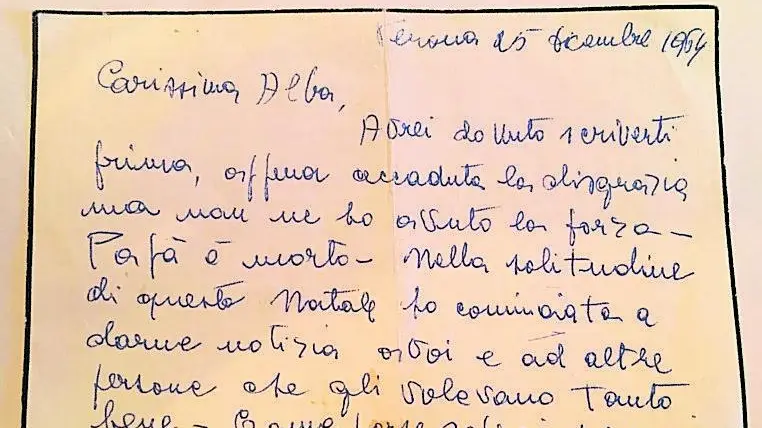 Verona 25 dicembre 1964
Carissima Alba,
Avrei dovuto scriverti
prima, appena accaduta la disgrazia
ma non ne ho avuto la forza -
Papà è morto - Nella solitudine
di questo Natale ho cominciato a
darne notizia a voi e ad altre
persone che gli volevano tanto
bene - Come forse